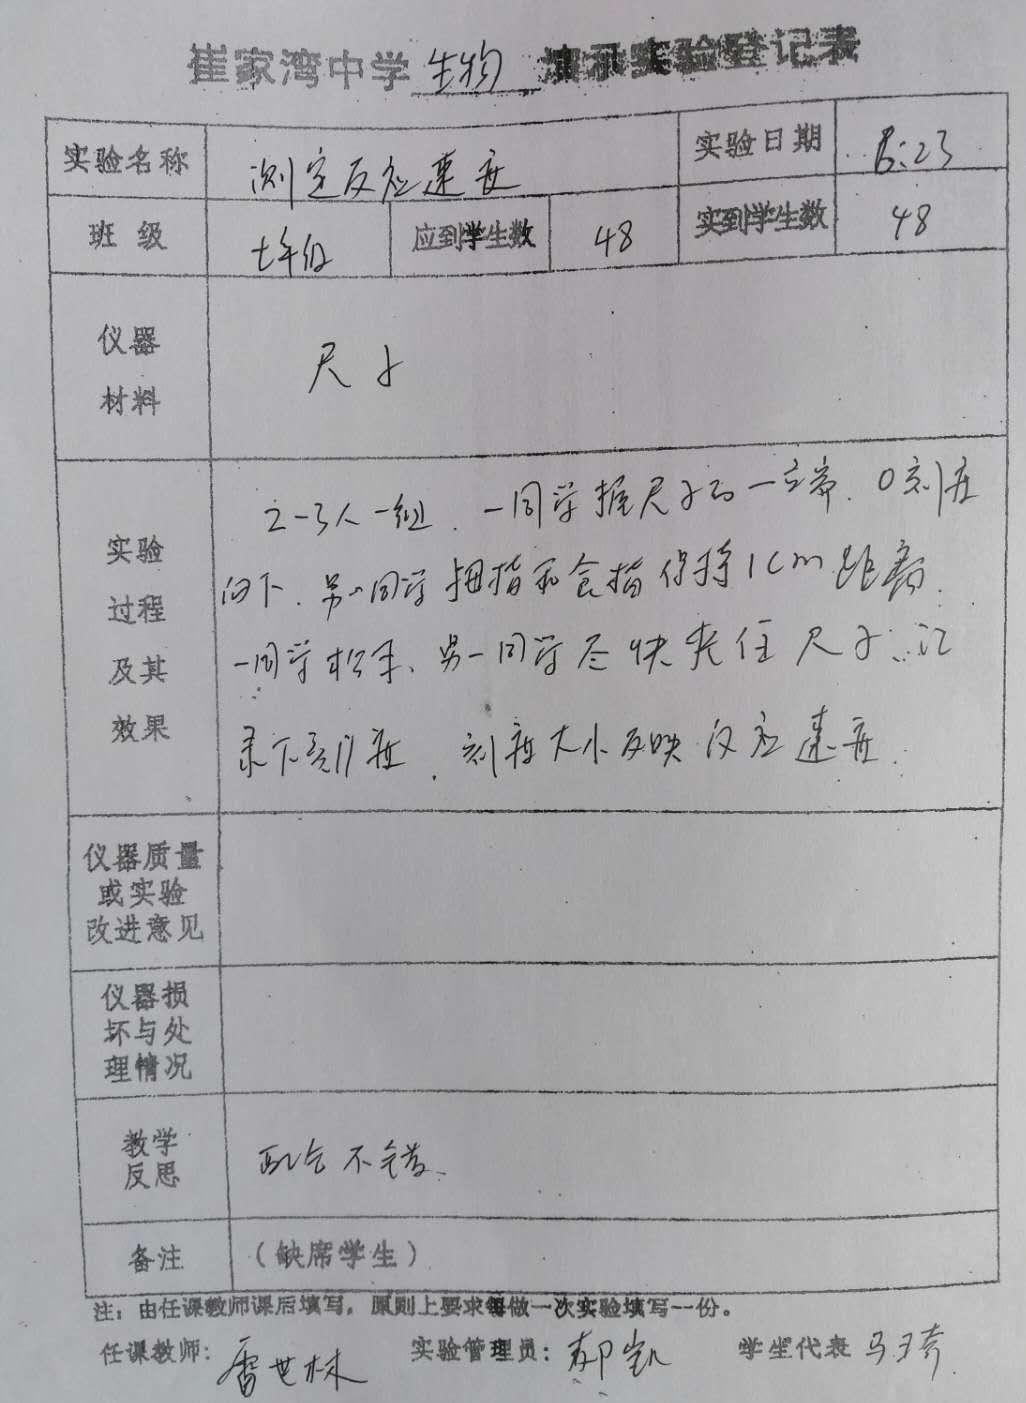 崔家湾中学生物演示实验登记表
实验名称 测定反应速度 实验日期 6.23
班级 七年级 应到学生数 48 实到学生数 48
仪器
材料
尺子
实验
过程
及其
效果
2-3人一组. 一同学握尺子的一立端. 0刻度
向下. 另一同学拇指和食指保持1cm距离.
一同学松手、另一同学尽快夹住尺子.记
录下刻度. 刻度大小反映反应速度.
仪器质量
或实验
改进意见
仪器损
坏与处
理情况
教学
反思
配合不错.
备注 (缺席学生)
注:由任课教师课后填写,原则上要求每做一次实验填写一份。
任课教师: 雷世林 实验管理员: 郝凯 学生代表 马